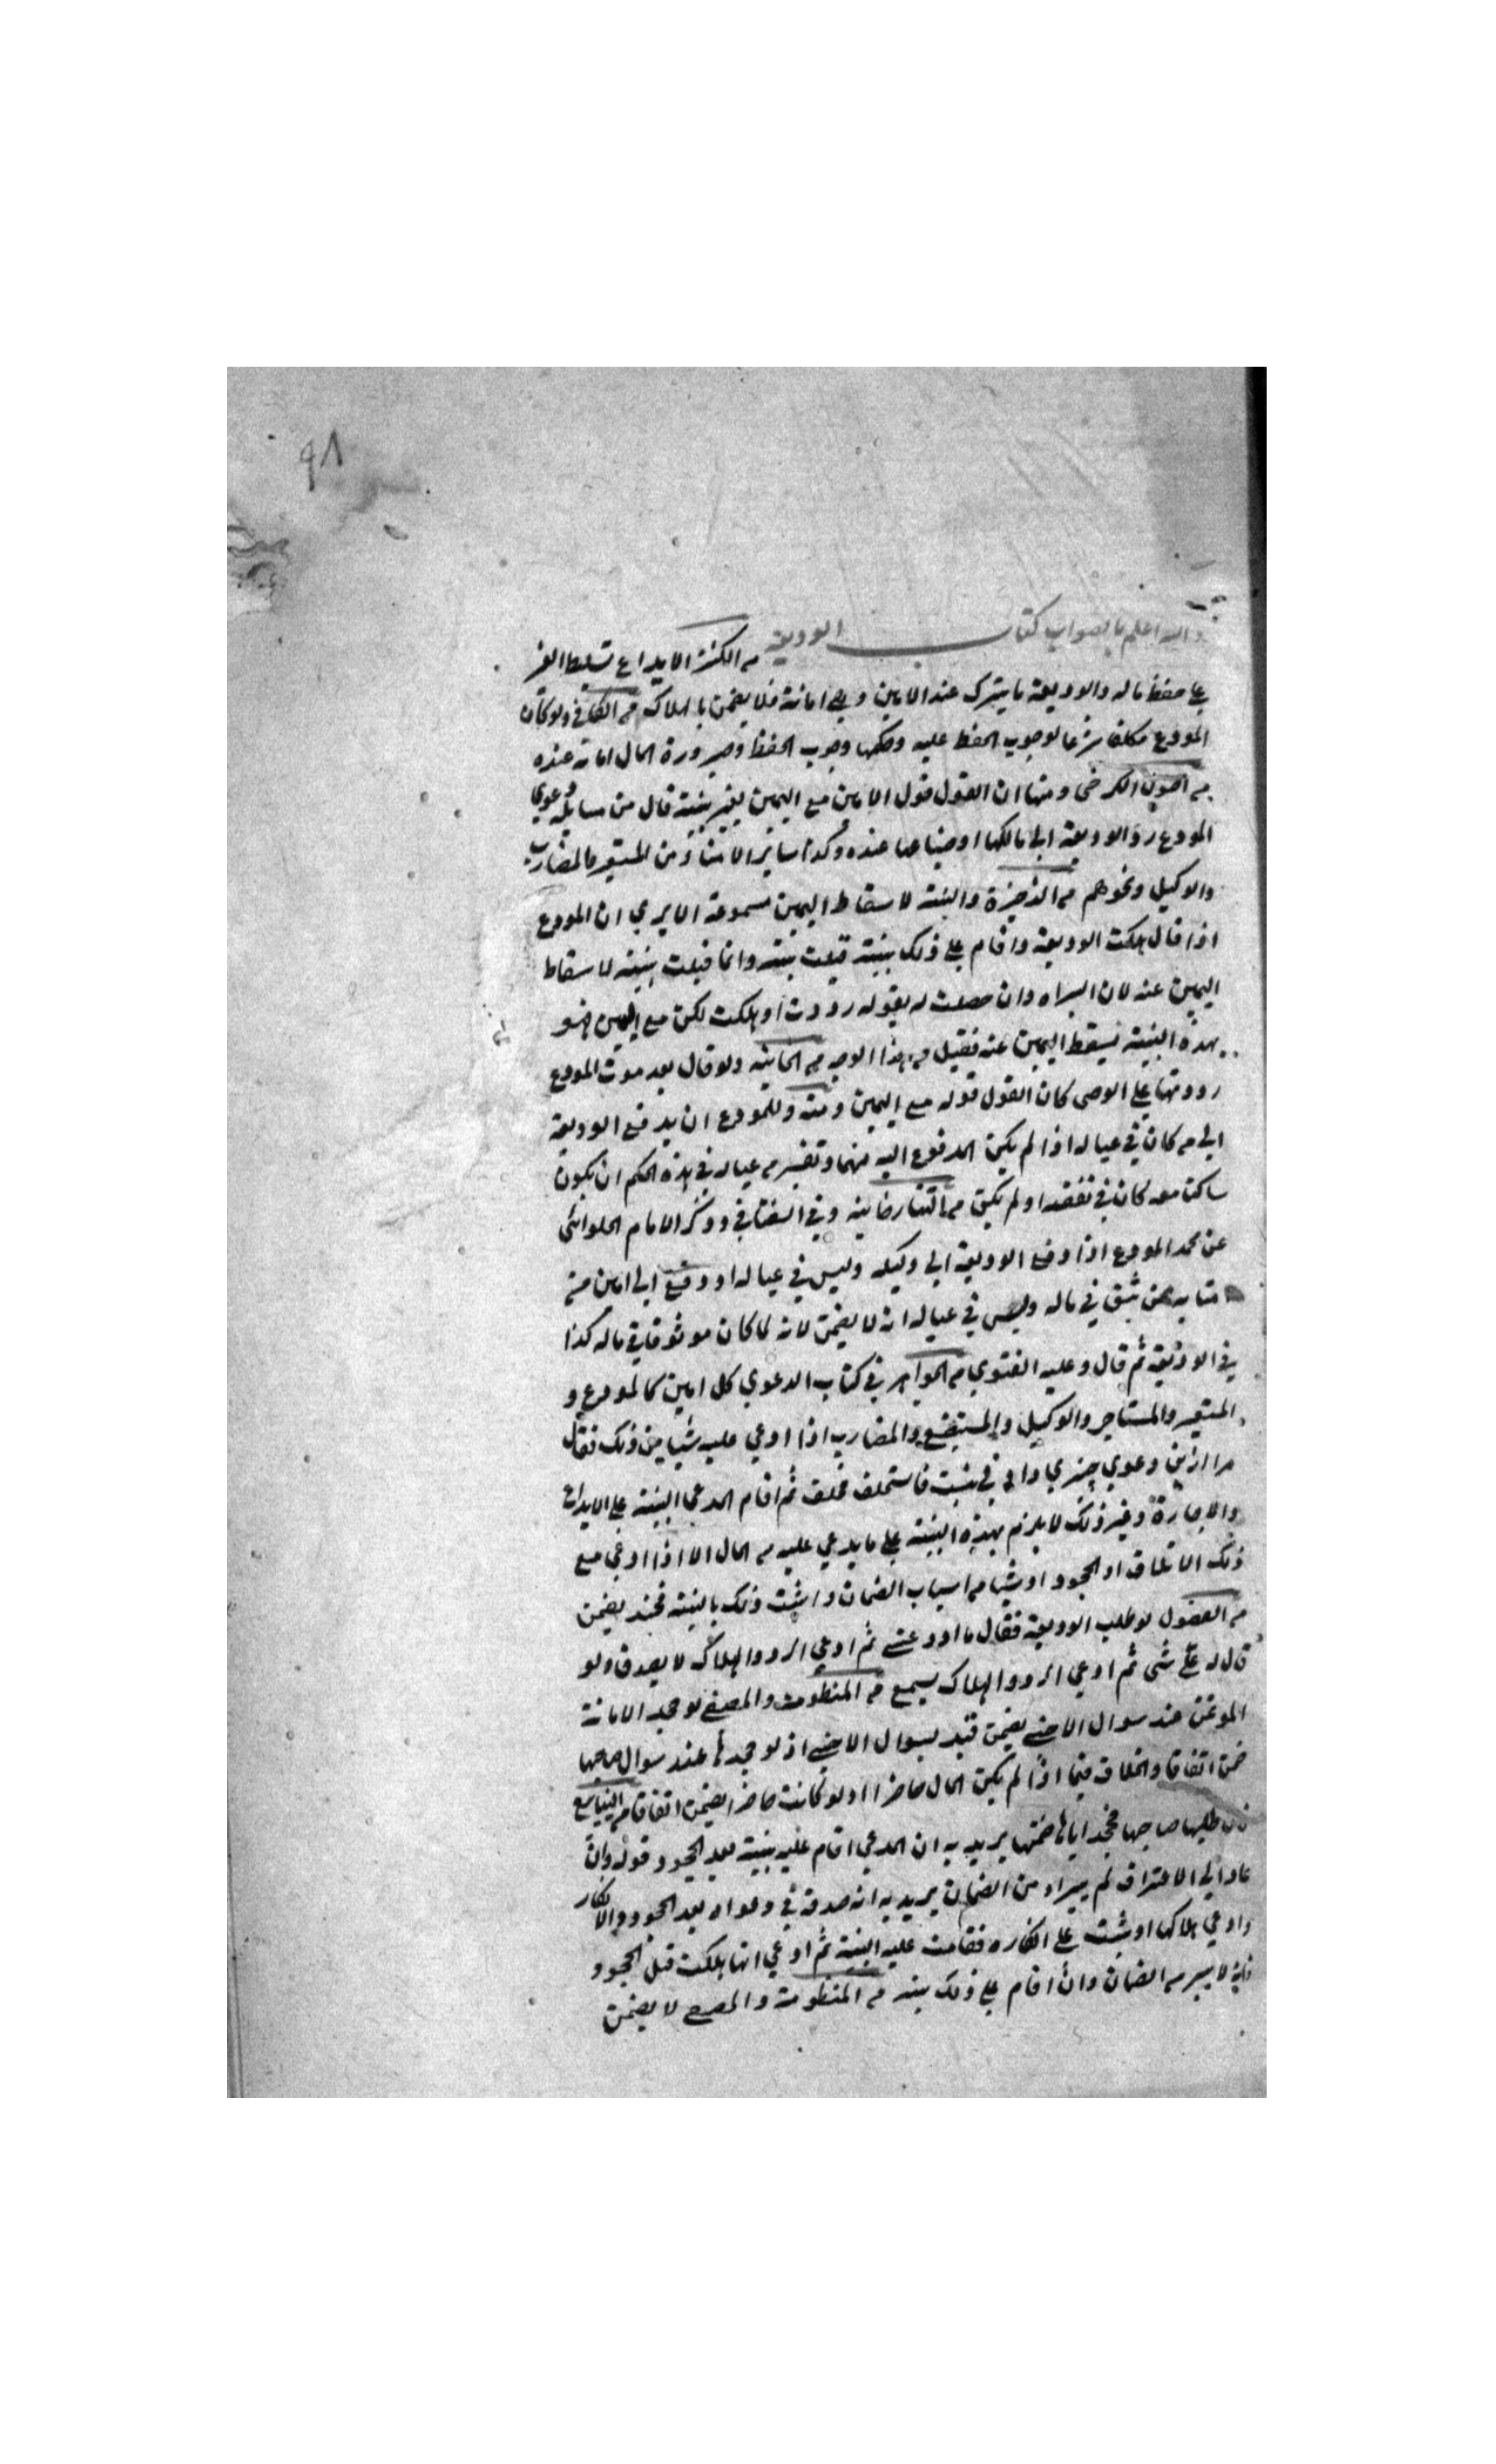 ٩٨
والله اعلم بالصواب كتاب الوديعة من الكنز الايداع تسليط الغير
على حفظ ماله والوديعة ما يترك عند الامين وهي امانة فلا يضمن بالهلاك من الكافي ولو كان
المودع مكلفا شرعا لوجوب الحفظ عليه وحكمها وجوب الحفظ وصيرورة المال امانة عنده
من اصول الكرخى ومنها ان القول قول الامين مع اليمين بغير بينة قال من مسايله دعوي
المودع رد الوديعة الي مالكها او ضياعها عنده وكذا ساير الامناء من المستعير والمضارب
والوكيل ونحوهم من الذخيرة والبينة لاسقاط اليمين مسموعة الا يري ان المودع
اذا قال هلكت الوديعة واقام على ذلك بينة قبلت بينته وانما قبلت بينته لاسقاط
اليمين عنه لان البراه وان حصلت له بقوله رددت او هلكت لكن مع اليمين فهو
بهذه البينة يسقط اليمين عنه فقبل من هذا الوجه من الخانية ولو قال بعد موت المودع
رددتها على الوصى كان القول قوله مع اليمين ومنه وللمودع ان يدفع الوديعة
الي من كان في عياله اذا لم يكن المدفوع اليه متهما وتفسير من عياله في هذه الحكم ان يكون
ساكنا معه كان في نفقته او لم يكن من التتارخانية وفي السغناقي وذكر الامام الحلوائى
عن محمد المودع اذا دفع الوديعة الي وكيله وليس في عياله او دفع الي امين من
امنايه ممن يثق في ماله وليس في عياله انه لا يضمن لانه لما كان موثوقا في ماله كذا
في الوديعة ثم قال وعليه الفتوي من الجواهر في كتاب الدعوي كل امين كالمودع و
المستعير والمستاجر والوكيل والمستبضع والمضارب اذا ادعي عليه شيا من ذلك فقال
مرا ازين دعوي چيزي دادني نيست فاستحلف فحلف ثم اقام المدعي البينة على الايداع
والاجارة وغير ذلك لا يلزم بهذه البينة على ما يدعي عليه من المال الا اذا ادعي مع
ذلك الاتلاف او الجحود او شيا من اسباب الضمان واثبت ذلك بالبينة فحينئذ يضمن
من الفصول لو طلب الوديعة فقال ما اودعتني ثم ادعي الرد والهلاك لا يصدق ولو
قال له علي شى ثم ادعي الرد والهلاك يسمع من المنظومة والمصفى لو جحد الامانة
الموتمن عند سوال الاجنبي يضمن قيد بسوال الاجنبي اذ لو جحدها عند سوال صاحبها
ضمن اتفاقا والخلاف فيما اذا لم يكن المال حاضرا اذ لو كانت حاضرا يضمن اتفاقا من الينابيع
فان طلبها صاحبها فجحد اياها ضمنها يريد به ان المدعي اقام عليه بينة بعد الجحود وقوله وان
عاد الي الاعتراف لم يبراء من الضمان يريد به انه صدقه في دعواه بعد الجحود والانكار
وادعي هلاكها او يثبت على انكاره فقامت عليه البينة ثم ادعي انها هلكت قبل الجحود
فانه لا يبر من الضمان وان اقام على ذلك بينه من المنظومة والمصفى لا يضمن